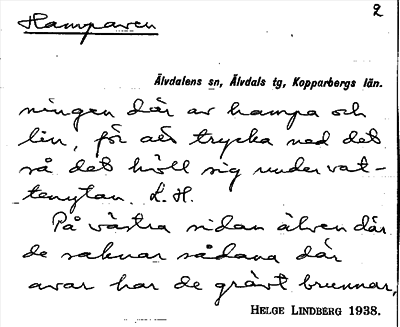 Hamparen
2
Älvdalens sn, Älvdals tg, Kopparbergs län.
ningen där av hampa och
lin, för att trycka ned det
så det höll sig under vat-
tenytan. L. H.
På västra sidan älven där
de saknar sådana där
avar har de grävt brunnar,
HELGE LINDBERG 1938.